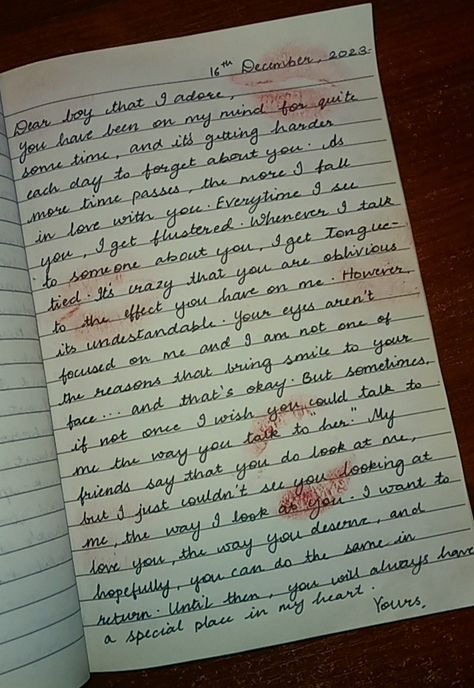 16th December, 2023.
Dear boy that I adore,
You have been on my mind for quite
some time, and it's getting harder
each day to forget about you. As
more time passes, the more I fall
in love with you. Everytime I see
you, I get flustered. Whenever I talk
to someone about you, I get Tongue-
tied. It's crazy that you are oblivious
to the effect you have on me. However,
its understandable. Your eyes aren't
focused on me and I am not one of
the reasons that bring smile to your
face... and that's okay. But sometimes,
if not once I wish you could talk to
me the way you talk to "her." My
friends say that you do look at me,
but I just couldn't see you looking at
me, the way I look at you. I want to
love you, the way you deserve, and
hopefully, you can do the same in
return. Until then, you will always have
a special place in my heart.
Yours,